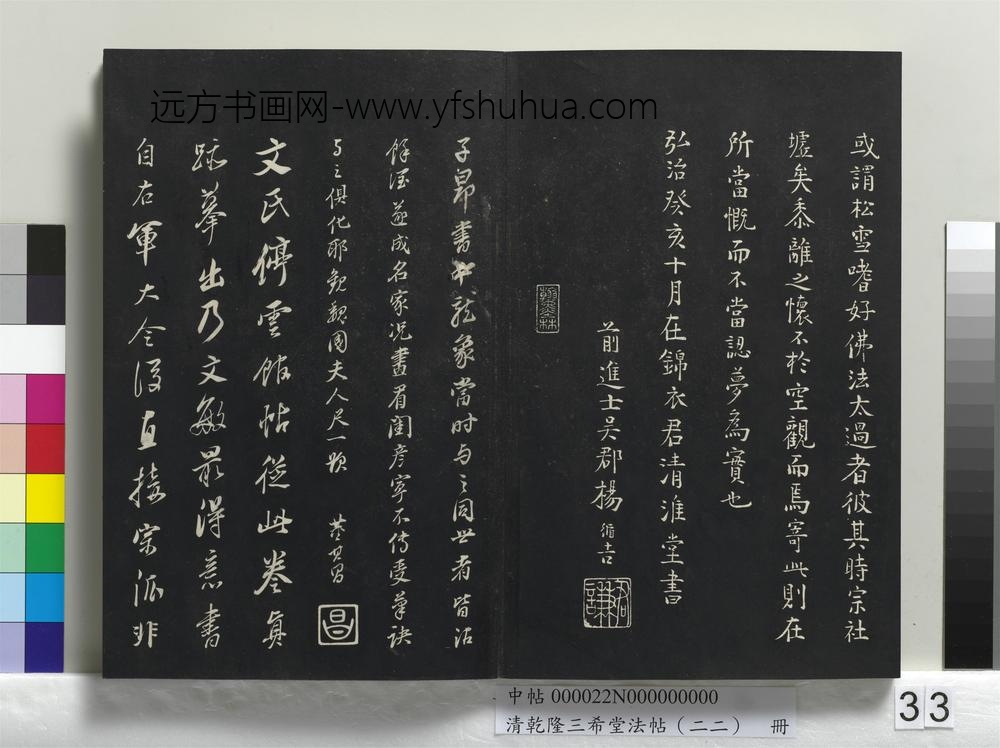 远方书画网-www.yfshuhua.com
或謂松雪嗜好佛法太過者彼其時宗社
墟矣黍離之懷不於空觀而焉寄此則在
所當慨而不當認夢為實也
弘治癸亥十月在錦衣君清淮堂書
前進士吳郡楊循吉
子昂書中龍象當时与之同世者皆沾
餘瀝遂成名家况畫眉閨彦寧不傳受筆訣
与之俱化耶觀魏國夫人尺一題
董其昌
昌
文氏停雲館帖從此卷真
跡摹出乃文敏最得意書
自右軍大令後直接宗派非
中帖 000022N000000000
清乾隆三希堂法帖（二二） 冊
33